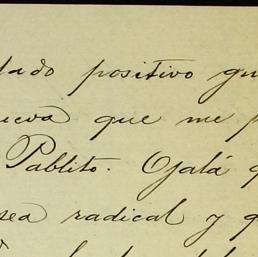 tado positivo
ueva que me
Pablito. Ojalá
sea radical y